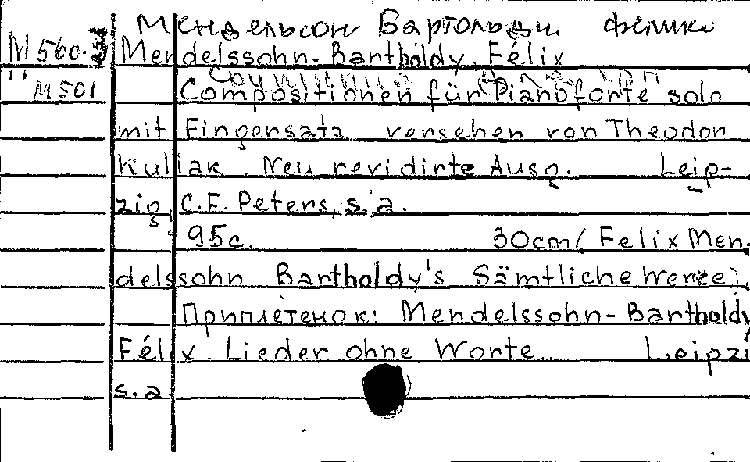 Мендельсон Бартольди Феликс
M560. Mendelssohn-Bartholdy, Félix
M501 Compositionen für Pianoforte solo
mit Fingersatz versehen von Theodor
Kullak. Neu revidirte Ausg. Leip-
zig, C.F. Peters, s.a.
95c. 30cm (Felix Men.
delssohn Bartholdy's Sämtliche Werke)
Приплетенок: Mendelssohn-Bartholdy
Félix. Lieder ohne Worte. Leipzi
s.a